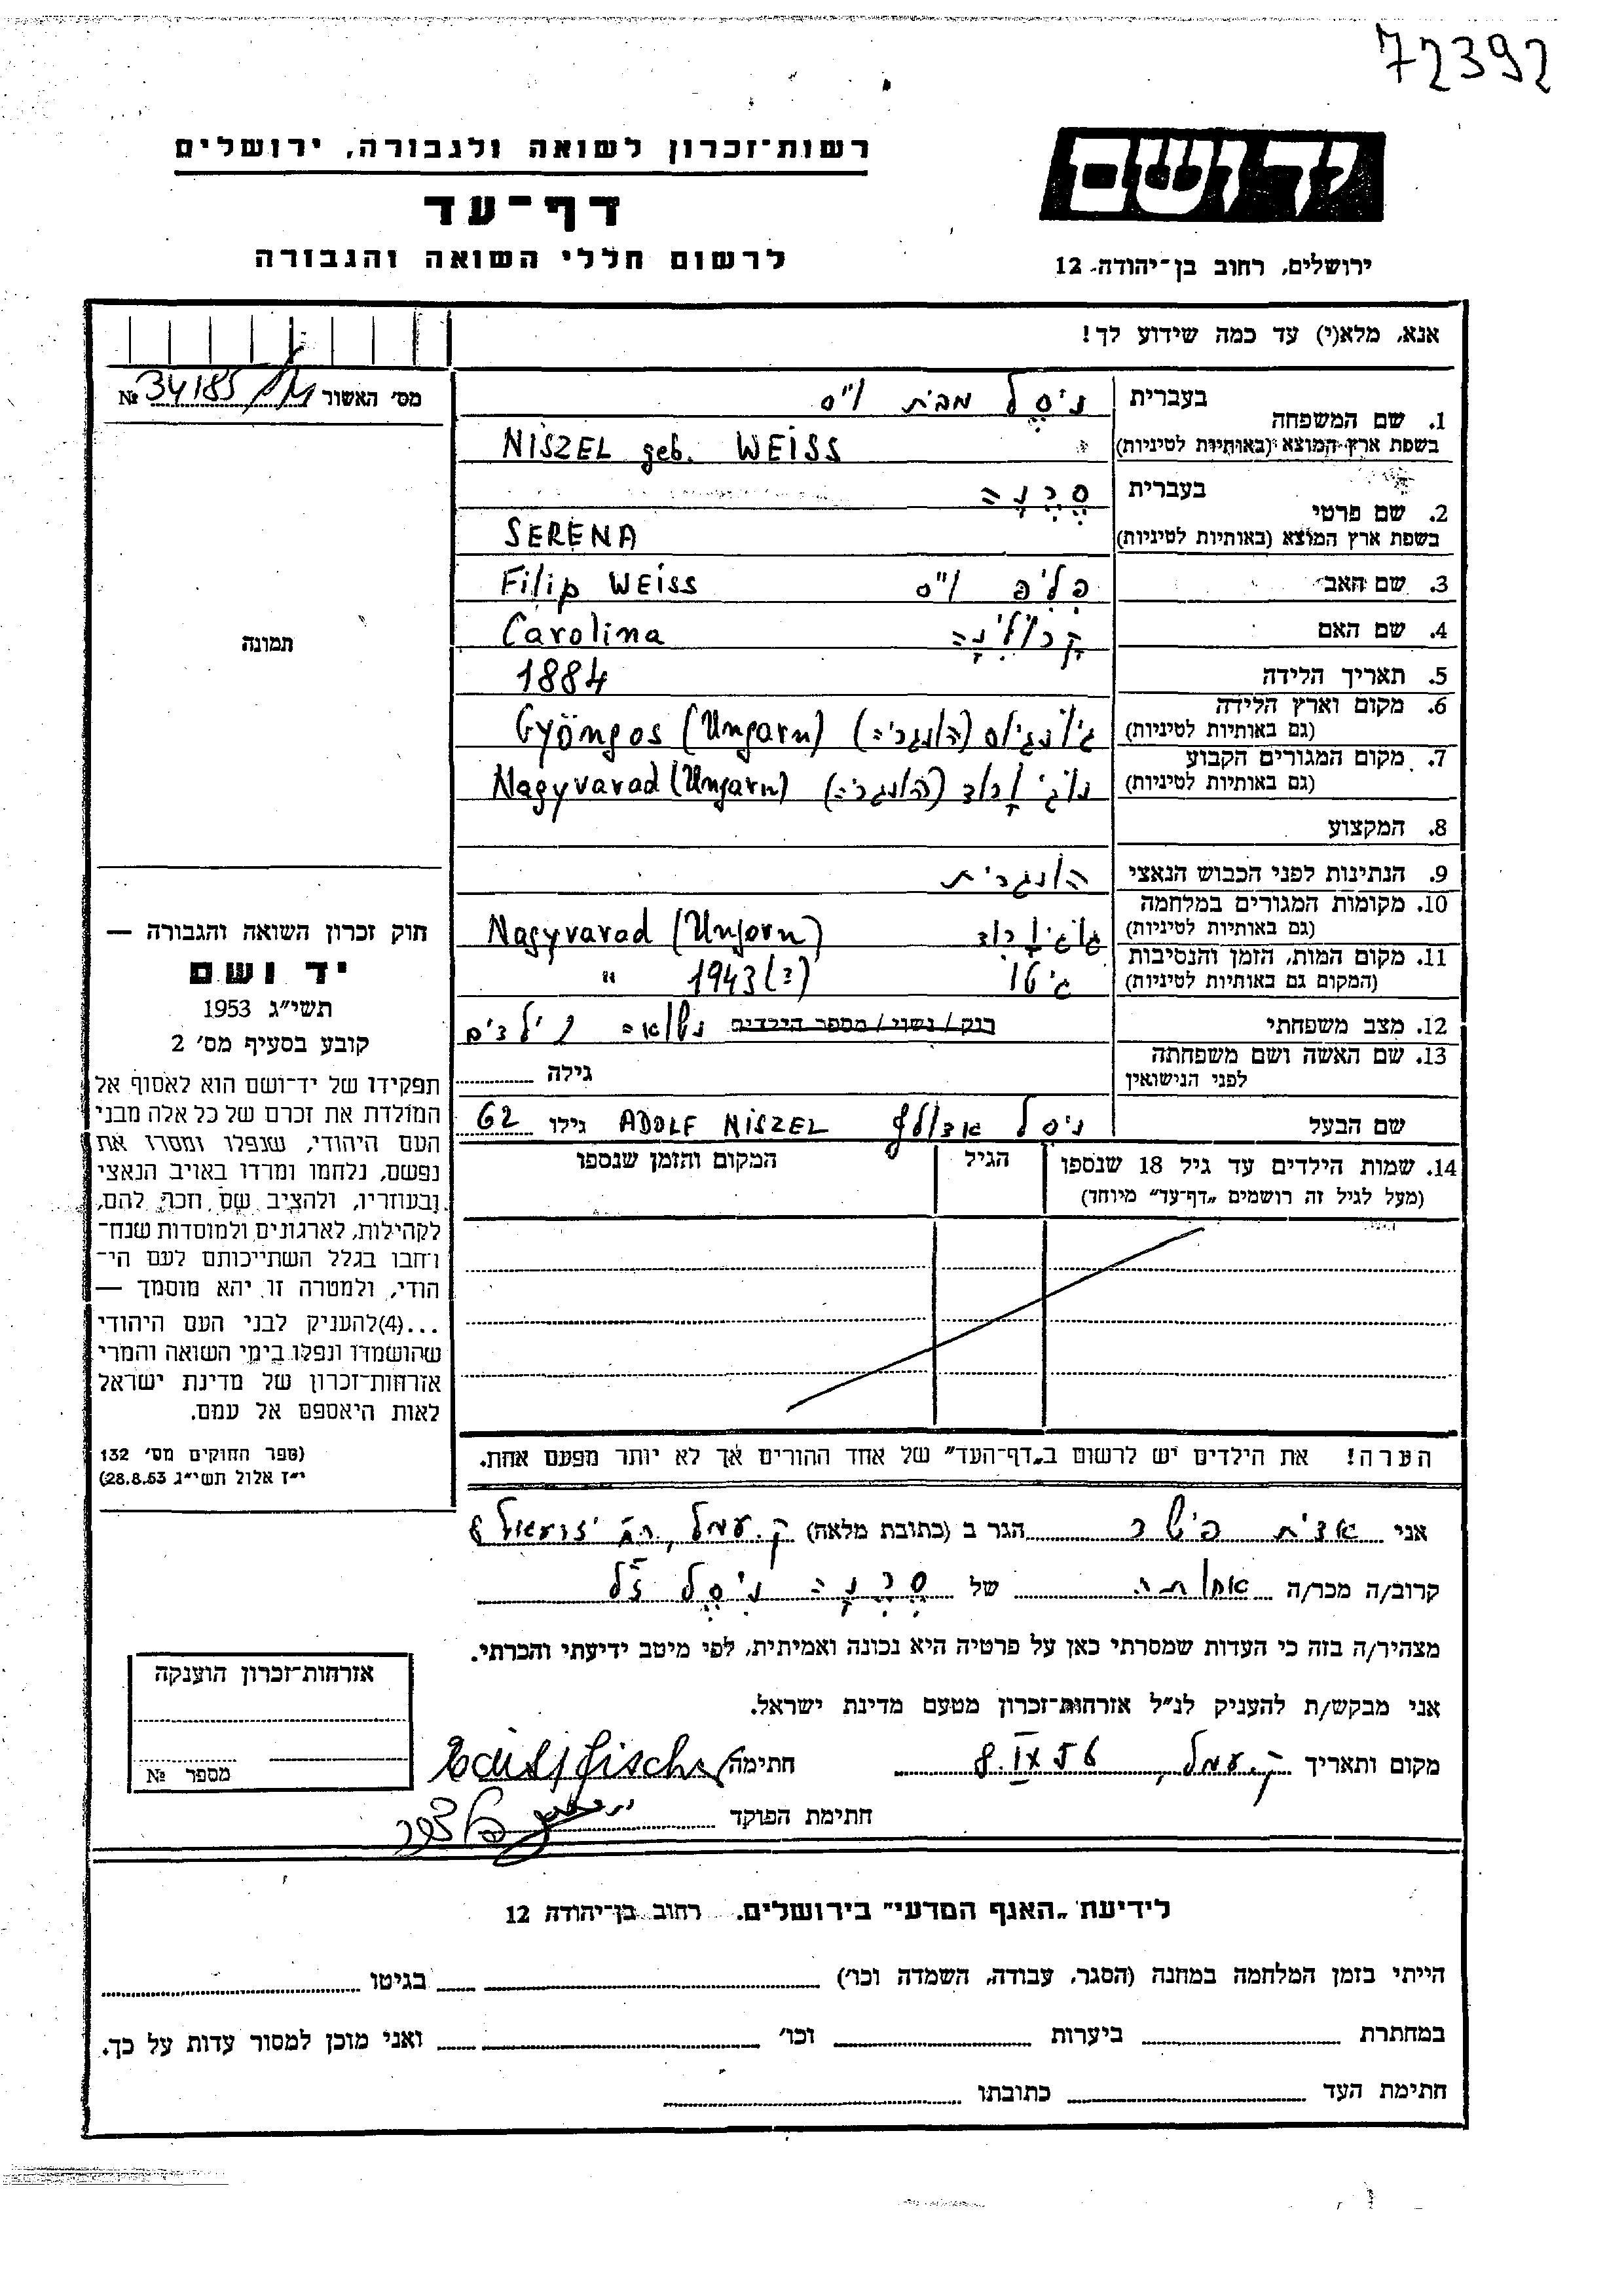 72392
יד ושם
רשות־זכרון לשואה ולגבורה, ירושלים
דף־עד
לרשום חללי השואה והגבורה
ירושלים, רחוב בן־יהודה 12
אנא, מלא(י) עד כמה שידוע לך!
מס׳ האשור № 34185
1. שם המשפחה בעברית ניסל מבית וייס
בשפת ארץ המוצא (באותיות לטיניות) NISZEL geb. WEISS
2. שם פרטי בעברית סרנה
בשפת ארץ המוצא (באותיות לטיניות) SERENA
3. שם האב פליפ וייס Filip WEISS
4. שם האם קרולינה Carolina
5. תאריך הלידה 1884
6. מקום וארץ הלידה (גם באותיות לטיניות) (הונגריה) Gyöngos (Ungarn)
7. מקום המגורים הקבוע (גם באותיות לטיניות) (הונגריה) Nagyvarad (Ungarn)
8. המקצוע
9. הנתינות לפני הכבוש הנאצי הונגרית
10. מקומות המגורים במלחמה (גם באותיות לטיניות) Nagyvarad (Ungarn)
11. מקום המות, הזמן והנסיבות (המקום גם באותיות לטיניות) גיטו 1943(?) "
12. מצב משפחתי רוק/נשוי/מספר הילדים נשואה ילדים
13. שם האשה ושם משפחתה לפני הנישואין גילה
שם הבעל ניסל אדולף ADOLF NISZEL גילו 62
14. שמות הילדים עד גיל 18 שנספו (מעל לגיל זה רושמים „דף־עד״ מיוחד) הגיל המקום והזמן שנספו
הערה! את הילדים יש לרשום ב„דף־העד״ של אחד ההורים אך לא יותר מפעם אחת.
תמונה
חוק זכרון השואה והגבורה —
יד ושם
תשי״ג 1953
קובע בסעיף מס׳ 2
תפקידו של יד־ושם הוא לאסוף אל
המולדת את זכרם של כל אלה מבני
העם היהודי, שנפלו ומסרו את
נפשם, נלחמו ומרדו באויב הנאצי
ובעוזריו, ולהציב שם וזכר להם,
לקהילות, לארגונים ולמוסדות שנח־
רבו בגלל השתייכותם לעם הי־
הודי, ולמטרה זו יהא מוסמך —
...(4)להעניק לבני העם היהודי
שהושמדו ונפלו בימי השואה והמרי
אזרחות־זכרון של מדינת ישראל
לאות היאספם אל עמם.
(ספר החוקים מס׳ 132
י״ז אלול תשי״ג 28.8.53)
אני אדית פישר הגר ב (כתובת מלאה) ק. עמל, רח׳
קרוב/ה מכר/ה אחותה של סרנה ניסל ז״ל
מצהיר/ה בזה כי העדות שמסרתי כאן על פרטיה היא נכונה ואמיתית, לפי מיטב ידיעתי והכרתי.
אני מבקש/ת להעניק לנ״ל אזרחות־זכרון מטעם מדינת ישראל.
מקום ותאריך ק. עמל, 8.IX 56 חתימה Edith Fischer
חתימת הפוקד
אזרחות־זכרון הוענקה
מספר №
לידיעת „האגף המדעי״ בירושלים. רחוב בן־יהודה 12
הייתי בזמן המלחמה במחנה (הסגר, עבודה, השמדה וכו׳) בגיטו
במחתרת ביערות וכו׳ ואני מוכן למסור עדות על כך.
חתימת העד כתובתו